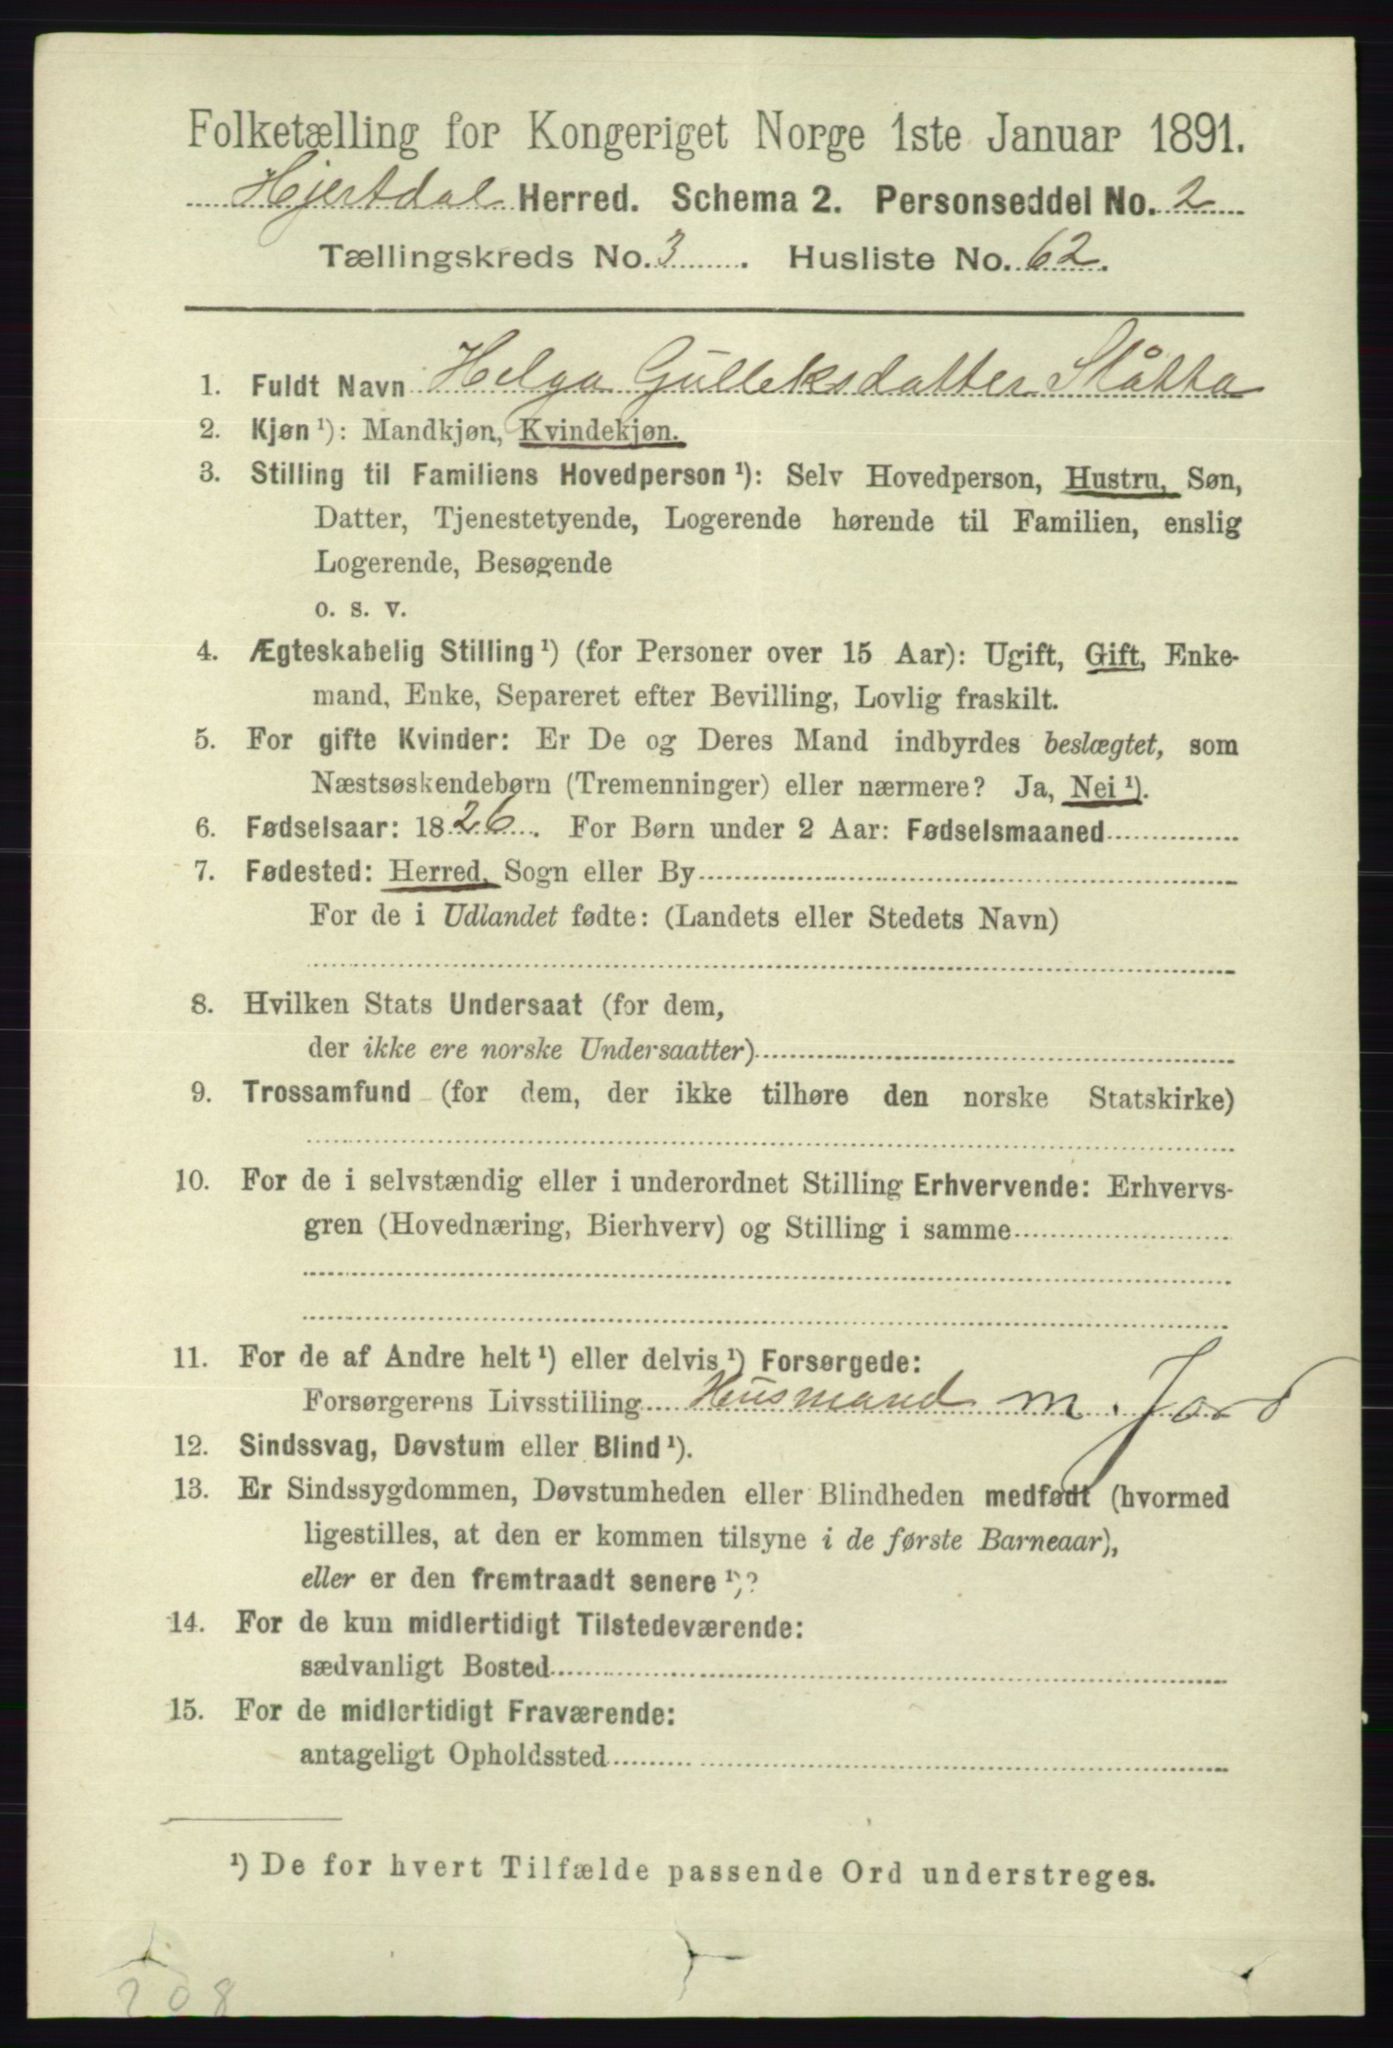 Folketælling for Kongeriget Norge 1ste Januar 1891.
Hjertdal Herred. Schema 2. Personseddel No. 2
Tællingskreds No. 3. Husliste No. 62.
1. Fuldt Navn Helga Gulleksdatter Slåtta
2. Kjøn ¹): Mandkjøn, Kvindekjøn.
3. Stilling til Familiens Hovedperson ¹): Selv Hovedperson, Hustru, Søn,
Datter, Tjenestetyende, Logerende hørende til Familien, enslig
Logerende, Besøgende
o. s. v.
4. Ægteskabelig Stilling ¹) (for Personer over 15 Aar): Ugift, Gift, Enke-
mand, Enke, Separeret efter Bevilling, Lovlig fraskilt.
5. For gifte Kvinder: Er De og Deres Mand indbyrdes beslægtet, som
Næstsøskendebørn (Tremenninger) eller nærmere? Ja, Nei ¹).
6. Fødselsaar: 1826. For Børn under 2 Aar: Fødselsmaaned
7. Fødested: Herred, Sogn eller By
For de i Udlandet fødte: (Landets eller Stedets Navn)
8. Hvilken Stats Undersaat (for dem,
der ikke ere norske Undersaatter)
9. Trossamfund (for dem, der ikke tilhøre den norske Statskirke)
10. For de i selvstændig eller i underordnet Stilling Erhvervende: Erhvervs-
gren (Hovednæring, Bierhverv) og Stilling i samme
11. For de af Andre helt ¹) eller delvis ¹) Forsørgede:
Forsørgerens Livsstilling Husmand m. Jord
12. Sindssvag, Døvstum eller Blind ¹).
13. Er Sindssygdommen, Døvstumheden eller Blindheden medfødt (hvormed
ligestilles, at den er kommen tilsyne i de første Barneaar),
eller er den fremtraadt senere ¹)?
14. For de kun midlertidigt Tilstedeværende:
sædvanligt Bosted
15. For de midlertidigt Fraværende:
antageligt Opholdssted
¹) De for hvert Tilfælde passende Ord understreges.
208